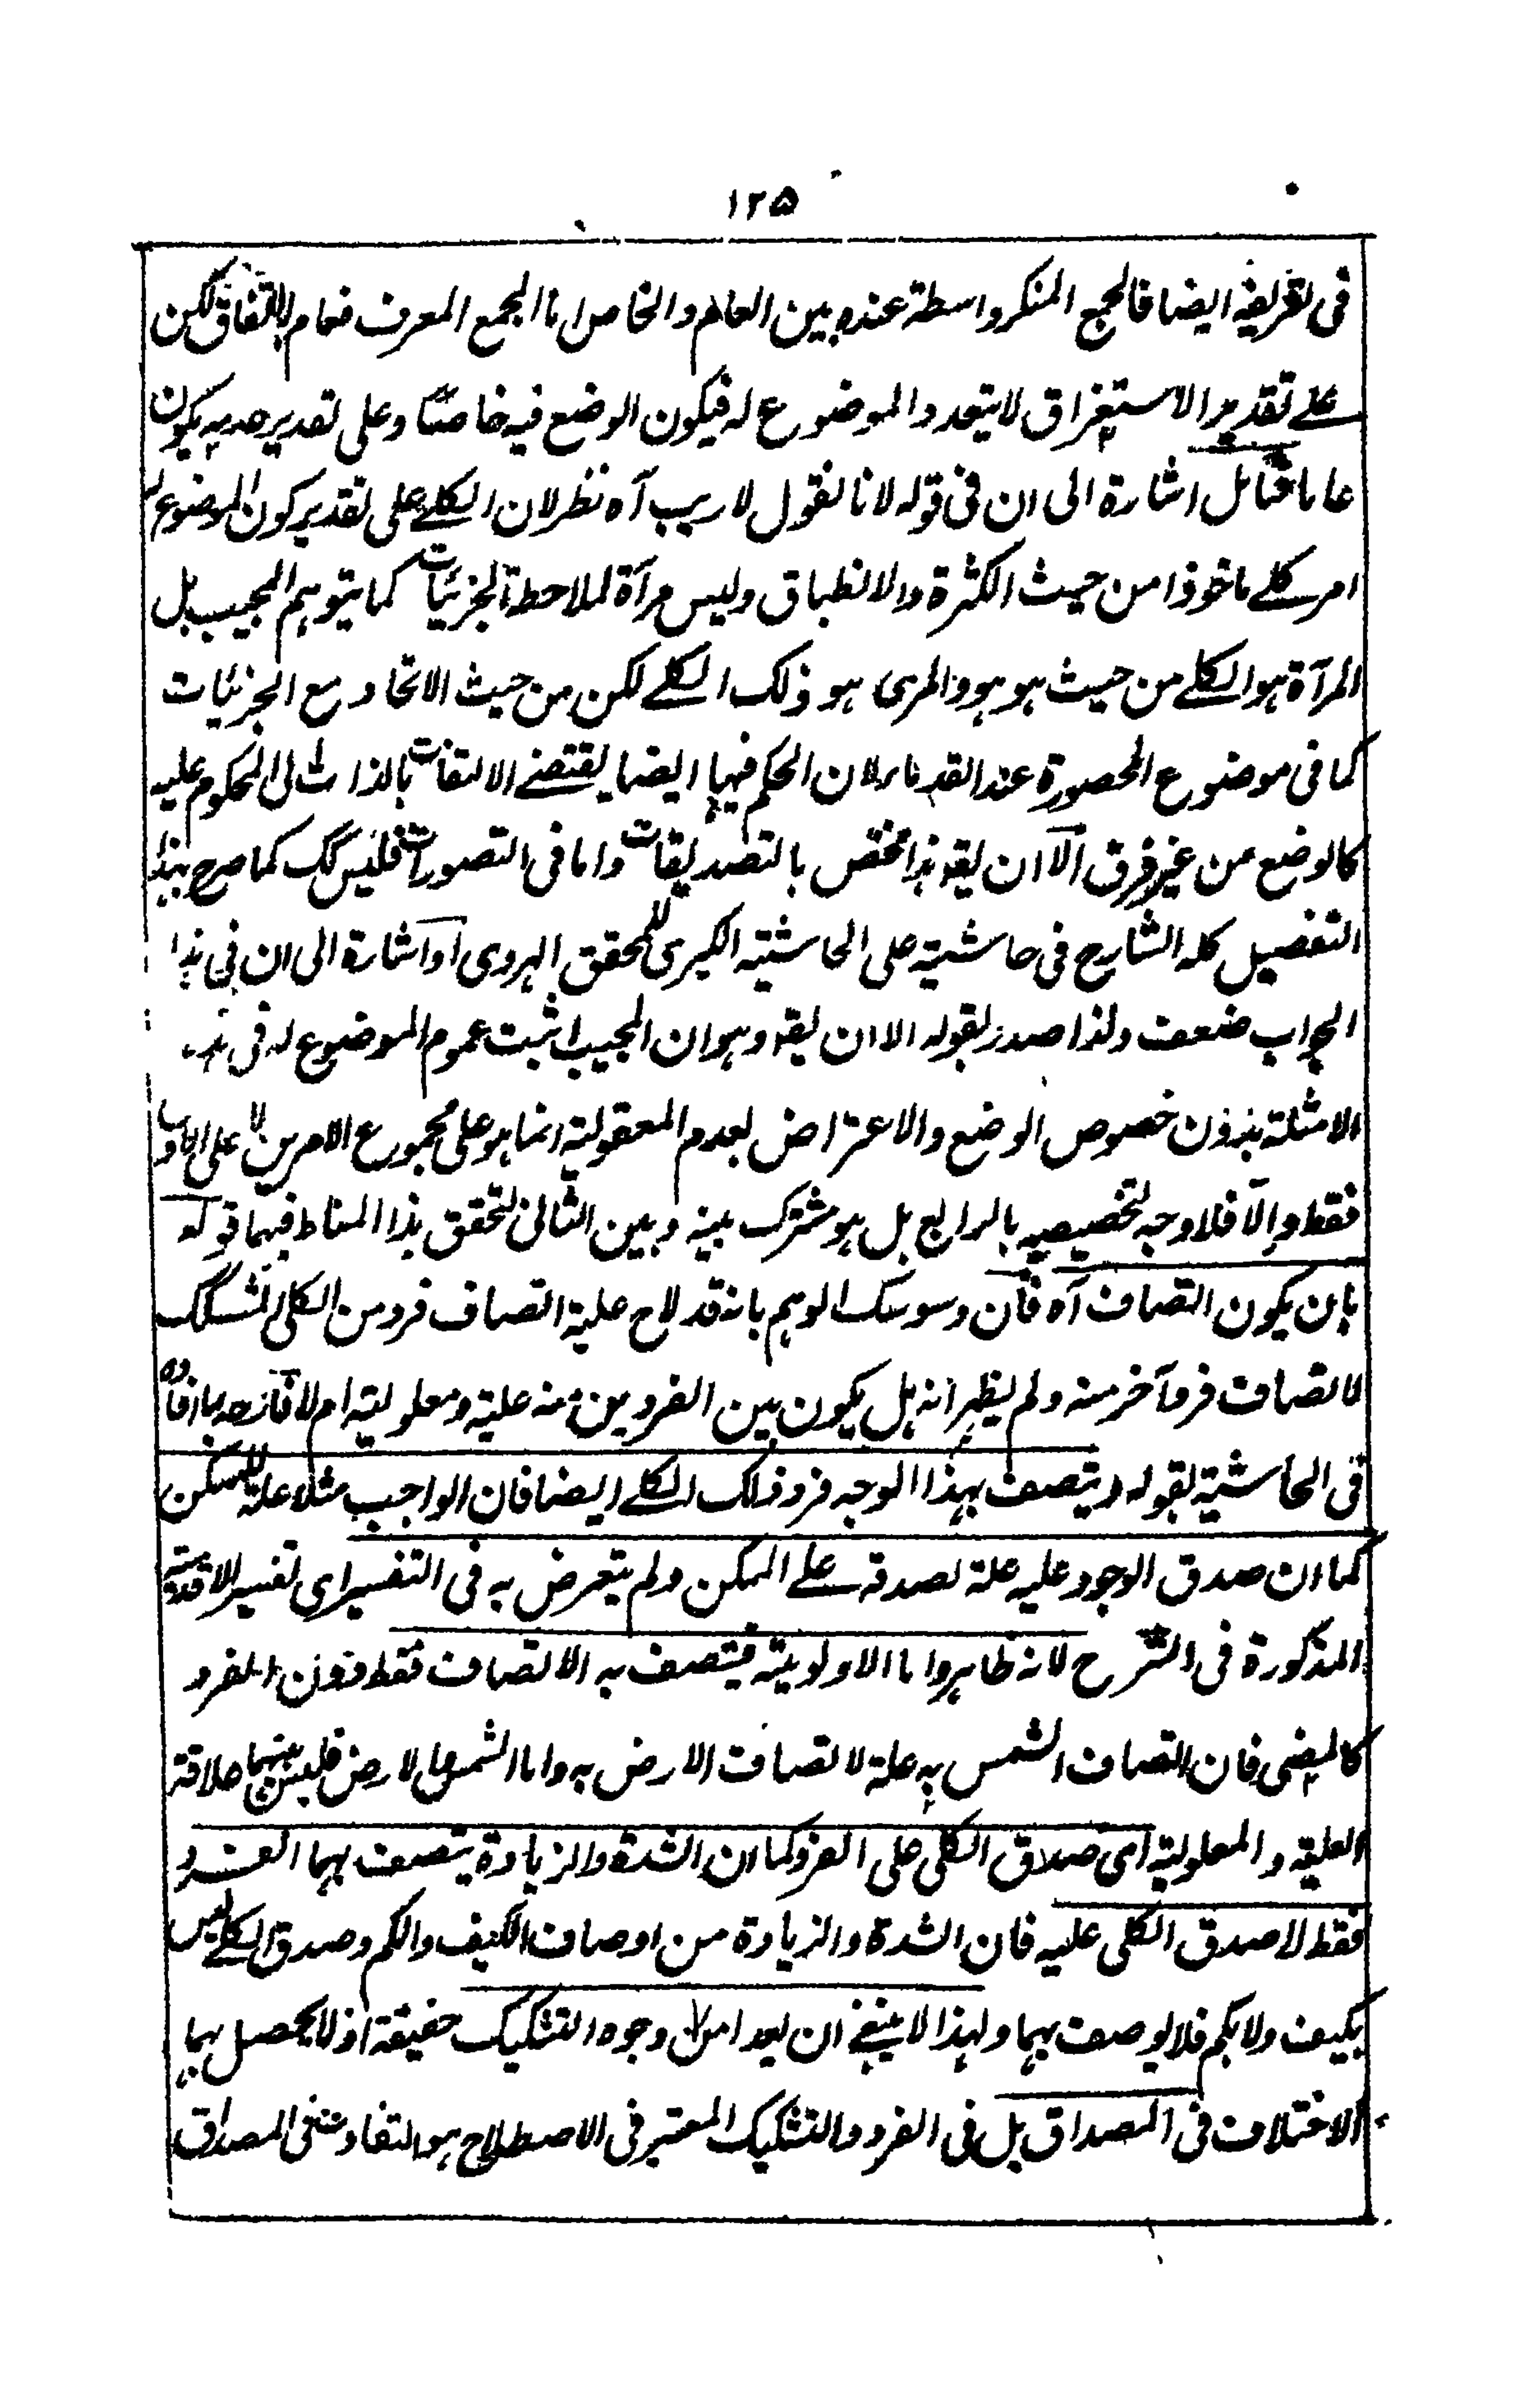 ١٢٥
فى تعريفه ايضا فالجمع المنكر واسطة عنده بين العام والخاص اما الجمع المعرف فعام بالاتفاق لكن
على تقدير الاستغراق لا يتعدد الموضوع له فيكون الوضع فيه خاصا وعلى تقدير عدمه يكون
عاما فتامل اشارة الى ان فى قوله لانا نقول لا ريب آه نظر لان الكلے على تقدير كون الموضوع له
امر كلے ماخوذا من حيث الكثرة والانطباق وليس مرآة لملاحظة الجزئيات كما يتوهم المجيب بل
المرآة هو الكلے من حيث هو هو والمرى هو ذلك الكلے لكن من حيث الاتحاد مع الجزئيات
كما فى موضوع المحصورة عند القدماء لان الحكم فيها ايضا يقتضے الالتفات بالذات الى المحكوم عليه
كالوضع من غير فرق الا ان يقه هذا مختص بالتصديقات واما فى التصورات فليس كك كما صرح بهذا
التفصيل كله الشارح فى حاشيته على الحاشية الكبرى للمحقق الهروى او اشارة الى ان فى هذا
الجواب ضعف ولذا صدر بقوله الا ان يقه وهو ان المجيب اثبت عموم الموضوع له فى هذه
الامثلة بدون خصوص الوضع والاعتراض بعدم المعقولية انما هو على مجموع الامرين لا على الاول
فقط والا فلا وجه لتخصيصه بالرابع بل هو مشترك بينه وبين الثانى لتحقق هذا المناط فيهما قوله
بان يكون اتصاف آه فان وسوسك الوهم بانه قد لاح علية اتصاف فرد من الكلى المشكك
لاتصاف فرد آخر منه ولم يظهر انه هل يكون بين الفردين منه علية ومعلولية ام لا فازحه بما افاده
فى الحاشية بقوله ويتصف بهذا الوجه فرد ذلك الكلے ايضا فان الواجب مثلا علة للممكن
كما ان صدق الوجود عليه علة لصدقه على الممكن ولم يتعرض به فى التفسير اى تفسير الاقدمية
المذكورة فى الشرح لانه ظاهر واما الاولوية فيتصف به الاتصاف فقط دون الفرد
كالمضى فان اتصاف الشمس به علة لاتصاف الارض به واما الشمس والارض فليس بينهما علاقة
العلية والمعلولية اى صدق الكلى على الفرد كما ان الشدة والزيادة يتصف بهما الفرد
فقط لا صدق الكلى عليه فان الشدة والزيادة من اوصاف الكيف والكم وصدق الكلے ليس
بكيف ولا بكم فلا يوصف بهما ولهذا لا ينبغے ان يعدا من وجوه التشكيك حقيقة اذ لا يحصل بهما
الاختلاف فى المصداق بل فى الفرد والتشكيك المعتبر فى الاصطلاح هو التفاوت فى المصداق